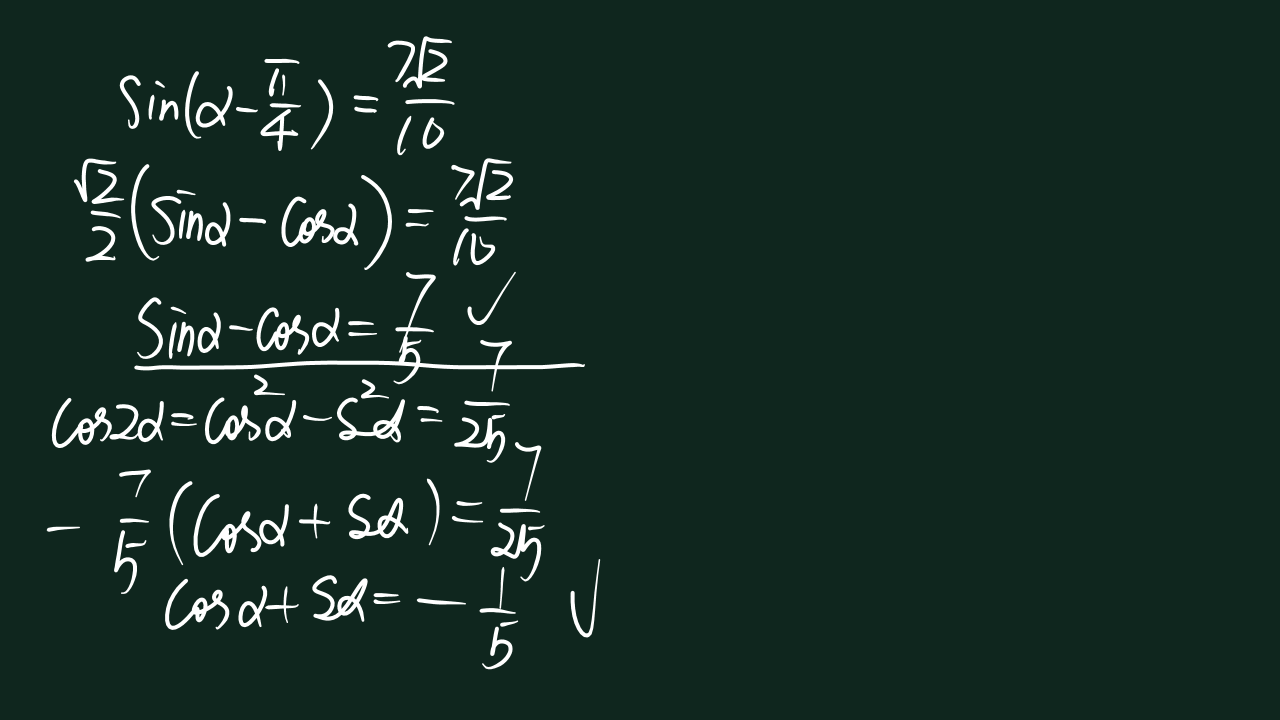 sin(α-π/4)=7√2/10
√2/2(sinα-cosα)=7√2/10
sinα-cosα=7/5 ✓
cos2α=cos²α-s²α=7/25
-7/5(cosα+sα)=7/25
cosα+sα=-1/5 ✓